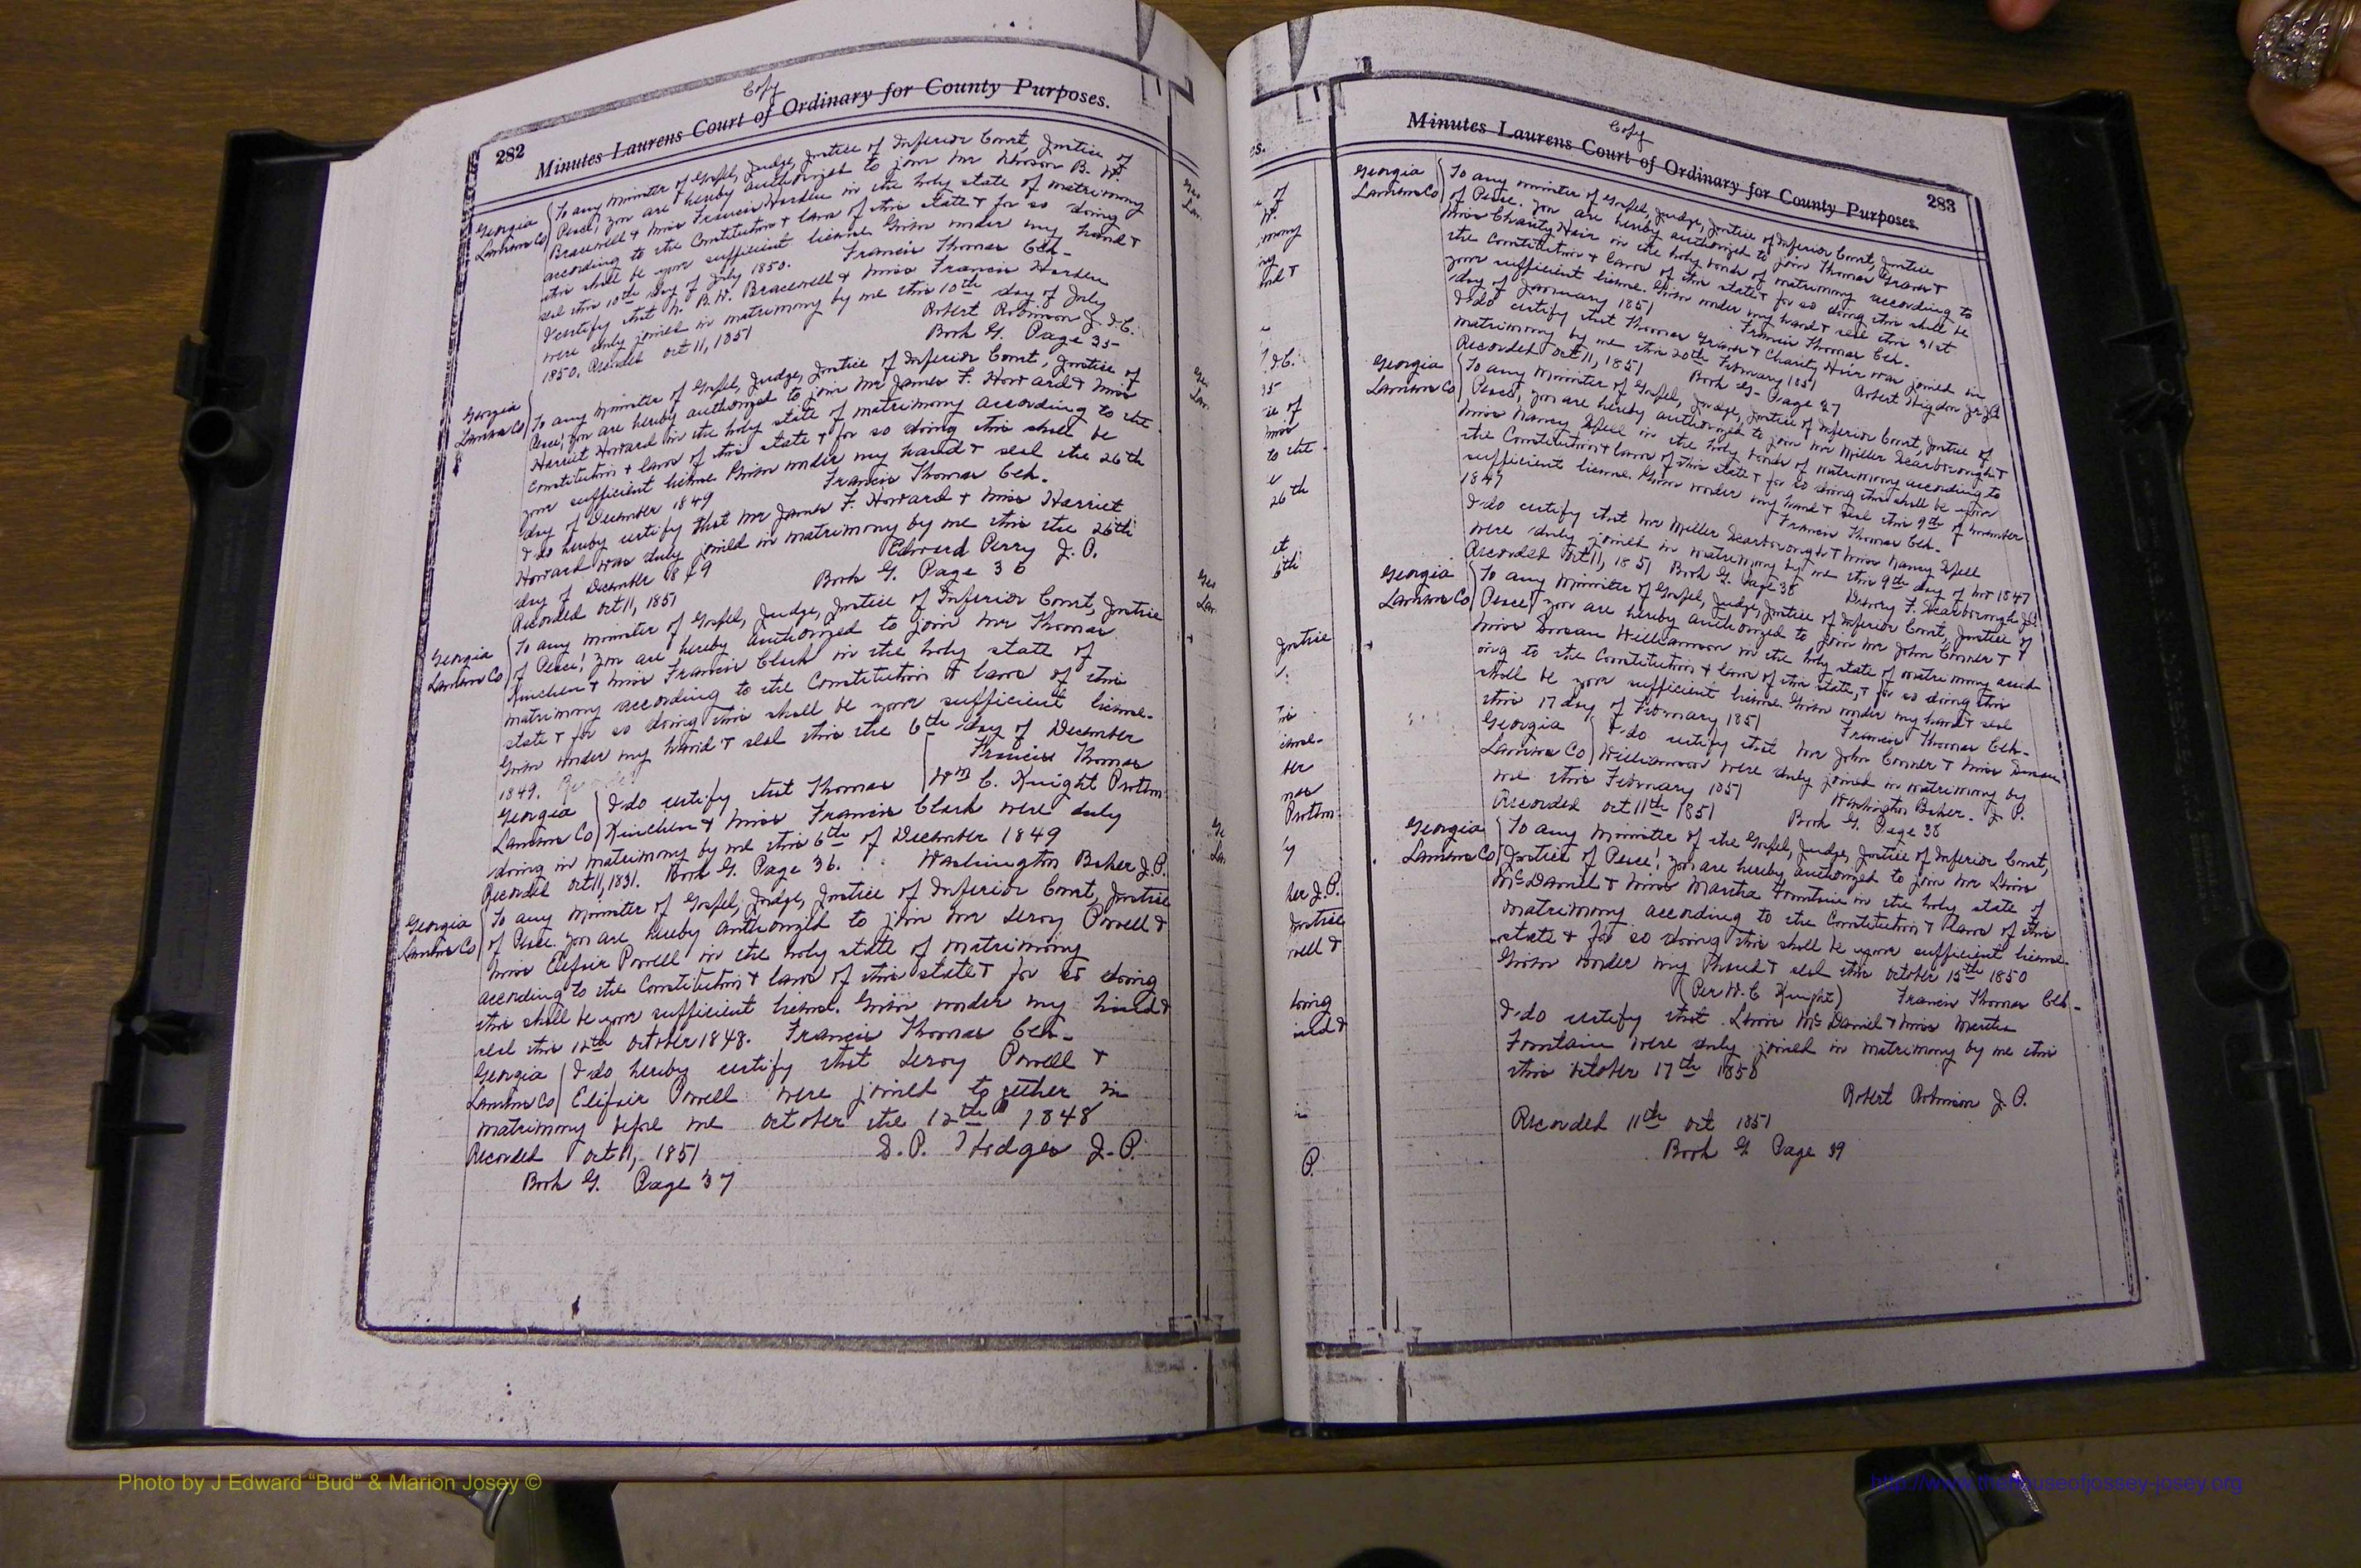 Copy
282 Minutes Laurens Court of Ordinary for County Purposes.
Georgia To any Minister of Gospel, Judge, Justice of Inferior Court, Justice of
Laurens Co Peace, you are hereby authorized to join Mr B. W.
Bracewell & Miss Francis Harden in the holy state of matrimony
according to the Constitution & laws of this state & for so doing
this shall be your sufficient license Given under my hand &
seal this 10th day of July 1850. Francis Thomas Clk.
I certify that B. W. Bracewell & Miss Francis Harden
were duly joined in matrimony by me this 10th day of July
1850. Robert Robinson J. I. C.
Recorded Oct 11, 1851 Book G. Page 35
Georgia To any Minister of Gospel, Judge, Justice of Inferior Court, Justice of
Laurens Co Peace, you are hereby authorized to join Mr James F. Howard & Miss
Harriet Howard in the holy state of matrimony according to the
Constitution & laws of this state & for so doing this shall be
your sufficient license Given under my hand & seal the 26th
day of December 1849 Francis Thomas Clk.
I do hereby certify that Mr James F. Howard & Miss Harriet
Howard was duly joined in matrimony by me this the 26th
day of December 1849 Edward Perry J. P.
Recorded Oct 11, 1851 Book G. Page 36
Georgia To any Minister of Gospel, Judge, Justice of Inferior Court, Justice
Laurens Co of Peace! you are hereby authorized to join Mr Thomas
Kinchen & Miss Francis Clark in the holy state of
matrimony according to the Constitution & laws of this
state & for so doing this shall be your sufficient license.
Given under my hand & seal this the 6th day of December
1849. Francis Thomas
Wm C. Knight Protem
Georgia I do certify that Thomas
Laurens Co Kinchen & Miss Francis Clark were duly
doing in matrimony by me this 6th of December 1849
Recorded Oct 11, 1831. Book G. Page 36. Washington Baker J. P.
Georgia To any Minister of Gospel, Judge, Justice of Inferior Court, Justice
Laurens Co of Peace. you are hereby authorized to join Mr Leroy Powell &
Miss Elifair Powell in the holy state of matrimony
according to the Constitution & laws of this state & for so doing
this shall be your sufficient license. Given under my hand &
seal this 12th October 1848. Francis Thomas Clk.
Georgia I do hereby certify that Leroy Powell &
Laurens Co Elifair Powell were joined to gether in
matrimony before me October the 12th 1848
Recorded Oct 11, 1851 D. P. Hodges J. P.
Book G. Page 37
Copy
Minutes Laurens Court of Ordinary for County Purposes. 283
Georgia To any minister of Gospel, Judge, Justice of Inferior Court, Justice
Laurens Co of Peace. you are hereby authorized to join Thomas Grant &
Miss Charity Hair in the holy bonds of matrimony according to
the Constitution & laws of this state & for so doing this shall be
your sufficient license. Given under my hand & seal this 31st
day of January 1851 Francis Thomas Clk.
I do certify that Thomas Grant & Charity Hair was joined in
matrimony by me this 20th February 1851 Robert Higdon
Recorded Oct 11, 1851 Book G Page 37
Georgia To any Minister of Gospel, Judge, Justice of Inferior Court, Justice of
Laurens Co Peace, you are hereby authorized to join Mr Miller Dearborough &
Miss Nancy Spell in the holy bonds of matrimony according to
the Constitution & laws of this state & for so doing this shall be your
sufficient license. Given under my hand & seal this 9th of November
1847 Francis Thomas Clk.
I do certify that Mr Miller Dearborough & Miss Nancy Spell
were duly joined in matrimony by me this 9th day of Nov 1847
Recorded Oct 11, 1851 Book G. Page 38 F. Dearborough
Georgia To any Minister of Gospel, Judge, Justice of Inferior Court, Justice of
Laurens Co Peace, you are hereby authorized to join Mr John Conner &
Miss Susan Williamson in the holy state of matrimony accord-
ing to the Constitution & laws of this state, & for so doing this
shall be your sufficient license. Given under my hand & seal
this 17 day of February 1851 Francis Thomas Clk.
Georgia I do certify that Mr John Conner & Miss Susan
Laurens Co Williamson were duly joined in matrimony by
me this February 1851 Washington Baker. J. P.
Recorded Oct 11th 1851 Book G. Page 38
Georgia To any Minister of the Gospel, Judge, Justice of Inferior Court,
Laurens Co Justice of Peace! you are hereby authorized to join Mr
McDaniel & Miss Martha Fountain in the holy state of
matrimony according to the Constitution & laws of this
state & for so doing this shall be your sufficient license.
Given under my hand & seal this October 15th 1850
(Per W. C Knight) Francis Thomas Clk.
I do certify that McDaniel & Miss Martha
Fountain were duly joined in matrimony by me this
this October 17th 1850
Robert Robinson J. P.
Recorded 11th Oct 1851
Book G Page 39
Photo by J Edward “Bud” & Marion Josey ©
http://www.thehouseofjossey-josey.org